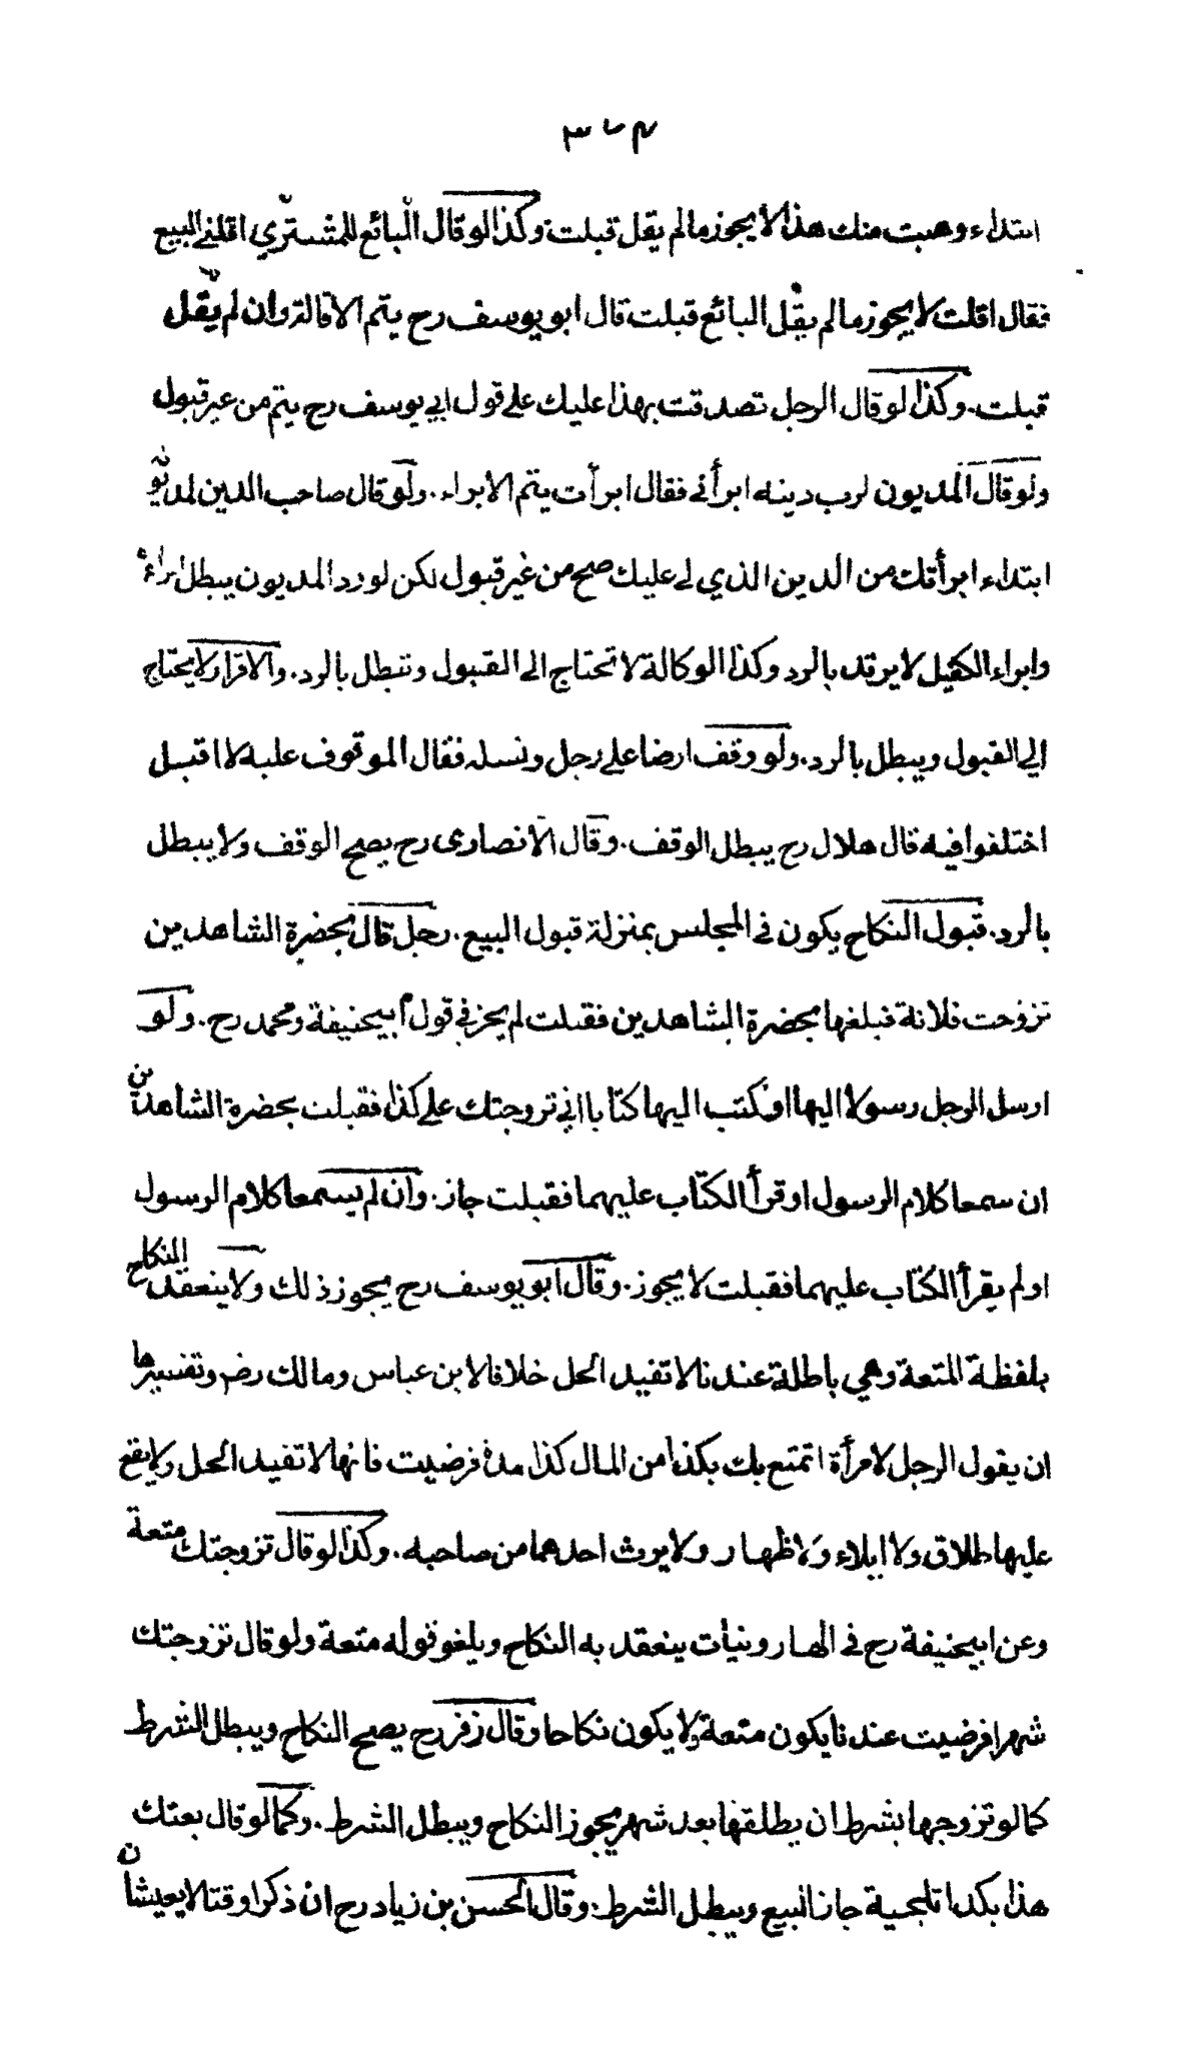 ٣٦٤
ابتداء وهبت منك هذا لا يجوز ما لم يقل قبلت وكذا لو قال البائع للمشتري اقلني البيع
فقال اقلت لا يجوز ما لم يقل البائع قبلت قال ابو يوسف رح يتم الاقالة وان لم يقل
قبلت. وكذا لو قال الرجل تصدقت بهذا عليك على قول ابي يوسف رح يتم من غير قبول
ولو قال المديون لرب دينه ابرأني فقال ابرأت يتم الابراء. ولو قال صاحب الدين لمديونه
ابتداء ابرأتك من الدين الذي لي عليك صح من غير قبول لكن لو رد المديون يبطل ابراءه
وابراء الكفيل لا يرتد بالرد وكذا الوكالة لا تحتاج الى القبول وتبطل بالرد. والاقرار لا يحتاج
الي القبول ويبطل بالرد. ولو وقف ارضا على رجل ونسله فقال الموقوف عليه لا اقبل
اختلفوا فيه قال هلال رح يبطل الوقف. وقال الانصارى رح يصح الوقف ولا يبطل
بالرد. قبول النكاح يكون في المجلس بمنزلة قبول البيع. رجل قال بحضرة الشاهدين
تزوجت فلانة فبلغها بحضرة الشاهدين فقبلت لم يجز في قول ابيحنيفة ومحمد رح. ولو
ارسل الرجل رسولا اليها او كتب اليها كتابا اني تزوجتك على كذا فقبلت بحضرة الشاهدين
ان سمعا كلام الرسول او قرأ الكتاب عليهما فقبلت جاز. وان لم يسمعا كلام الرسول
او لم يقرأ الكتاب عليهما فقبلت لا يجوز. وقال ابو يوسف رح يجوز ذلك ولا ينعقد النكاح
بلفظة المتعة وهي باطلة عندنا لا تفيد الحل خلافا لابن عباس ومالك رضم وتفسيرها
ان يقول الرجل لامرأة اتمتع بك بكذا من المال كذا مدة فرضيت فانها لا تفيد الحل ولا يقع
عليها طلاق ولا ايلاء ولا ظهار ولا يرث احدهما من صاحبه. وكذا لو قال تزوجتك متعة
وعن ابيحنيفة رح في الهارونيات ينعقد به النكاح ويلغو قوله متعة ولو قال تزوجتك
شهرا فرضيت عندنا يكون متعة ولا يكون نكاحا وقال زفر رح يصح النكاح ويبطل الشرط
كما لو تزوجها بشرط ان يطلقها بعد شهر يجوز النكاح ويبطل الشرط. وكما لو قال بعتك
هذا بكذا تلجية جاز البيع ويبطل الشرط. وقال الحسن بن زياد رح ان ذكرا وقتا لا يعيشان